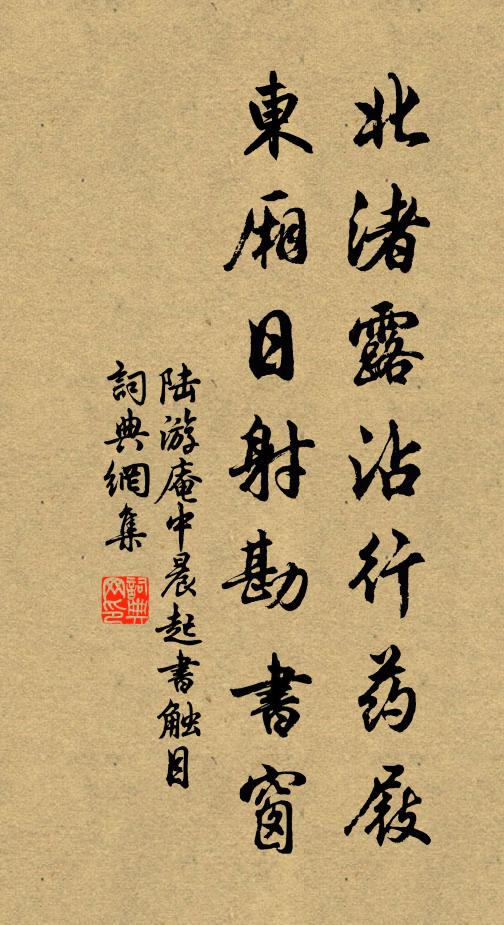 北渚露沾行药屐
東厢日射勘書窗
陆游庵中晨起書触目
詞典網集
詞典网印